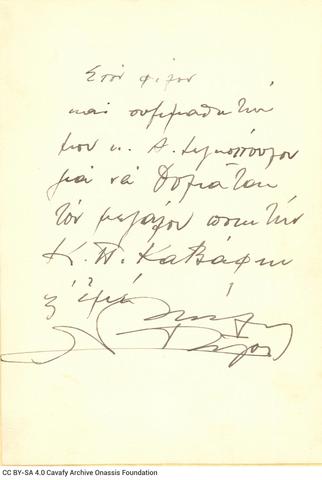 Στόν φίλον
καί συμμαθητήν
μου κ. Α. Σεγκόπουλον
γιά νά θυμᾶται
τόν μεγάλον ποιητήν
Κ. Π. Καβάφην
κ' ἐμέ
CC BY-SA 4.0 Cavafy Archive Onassis Foundation